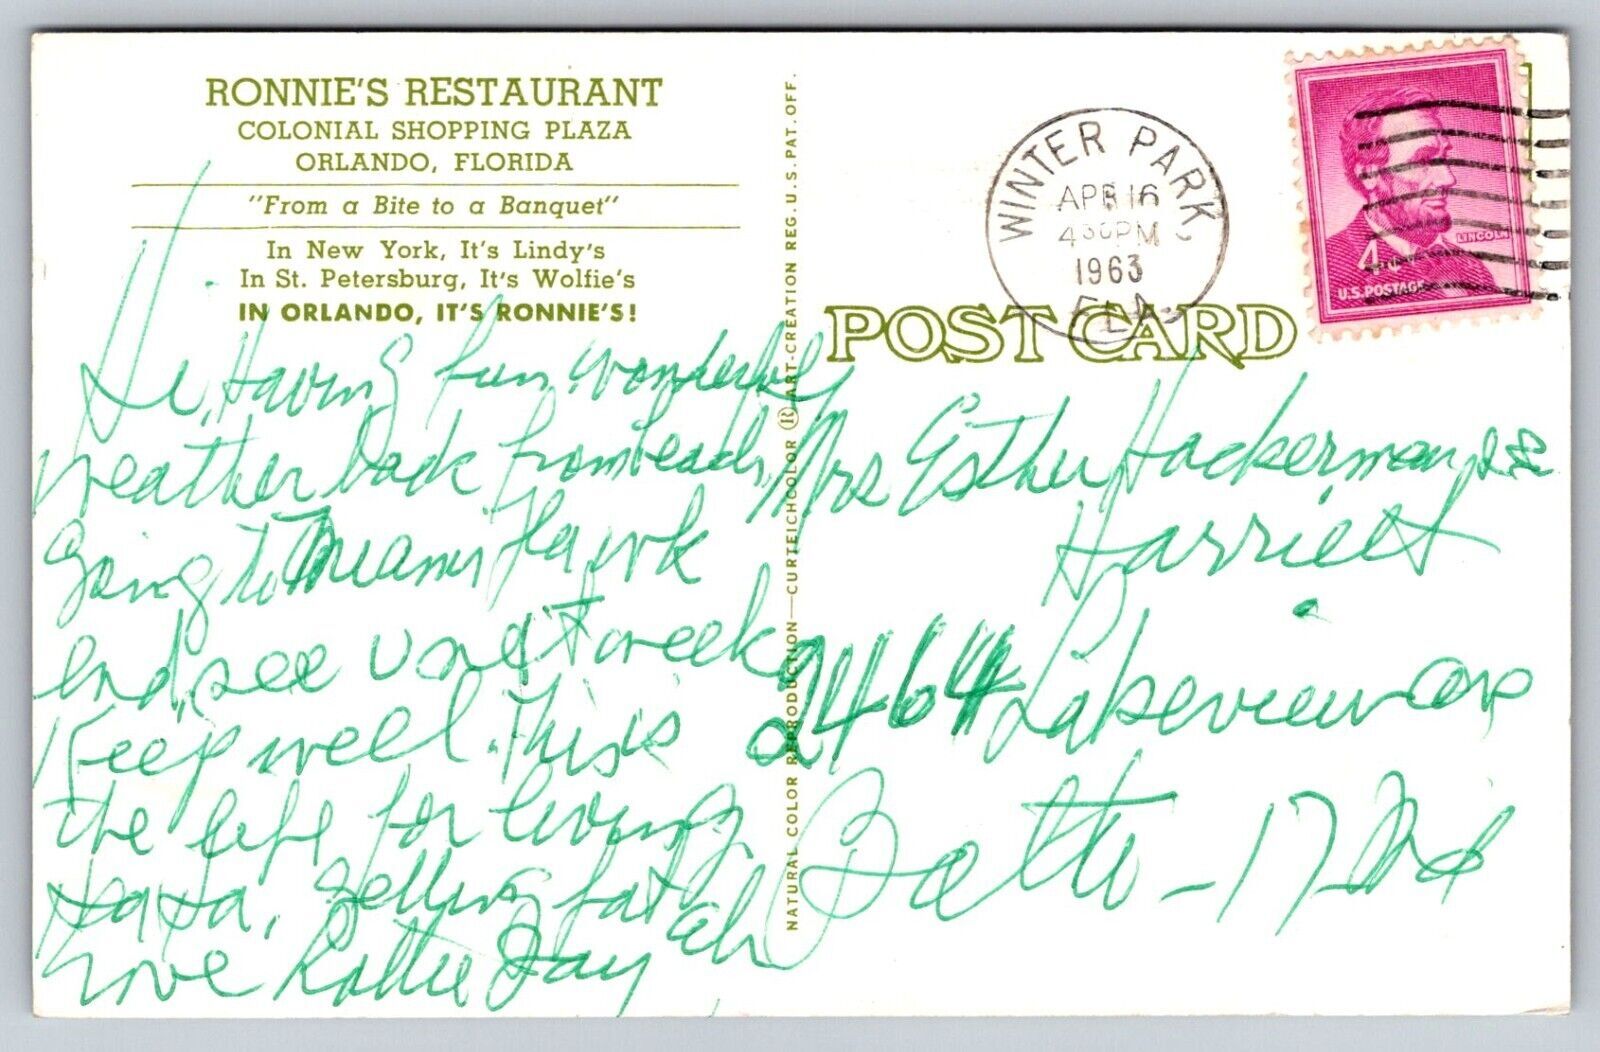 RONNIE'S RESTAURANT
COLONIAL SHOPPING PLAZA
ORLANDO, FLORIDA
"From a Bite to a Banquet"
In New York, It's Lindy's
In St. Petersburg, It's Wolfie's
IN ORLANDO, IT'S RONNIE'S!
Hi, Having fun wonderful
weather back from beach,
going to Miami
end see U next week
Keep well. This is
the life for living
Ha Ha, getting fat
Love Ray
NATURAL COLOR REPRODUCTION—CURTEICHCOLOR ® ART-CREATION REG. U.S. PAT. OFF.
WINTER PARK
APR 16
430PM
1963
FLA.
LINCOLN
4¢
U.S. POSTAGE
POST CARD
Mrs Esther Hackerman &
Harriett
2464 Lakeview Ave
Balto - 17 Md